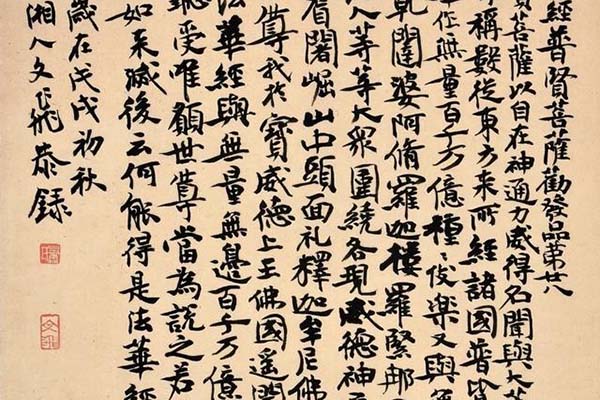 經普賢菩薩勸發品第廿八
菩薩以自在神通力威得名聞與大菩
稱數從東方来所經諸國普皆
作無量百千万億種〻伎樂又與無
乾闥婆阿脩羅迦樓羅緊那
人等等大衆圍繞各現威德神
耆闍崛山中頭面礼釋迦牟尼佛
尊我於寶威德上王佛國遥聞
法華經與無量無邊百千万億
聽受唯願世尊當為說之若
如来滅後云何能得是法華經
歲在戊戌初秋
湘人文飛恭録